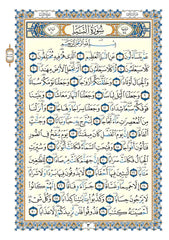 سُورَةُ النَّبَإِ
بِسْمِ اللَّهِ الرَّحْمَٰنِ الرَّحِيمِ
عَمَّ يَتَسَاءَلُونَ ١ عَنِ النَّبَإِ الْعَظِيمِ ٢ الَّذِي هُمْ فِيهِ مُخْتَلِفُونَ ٣
كَلَّا سَيَعْلَمُونَ ٤ ثُمَّ كَلَّا سَيَعْلَمُونَ ٥ أَلَمْ نَجْعَلِ الْأَرْضَ مِهَادًا ٦
وَالْجِبَالَ أَوْتَادًا ٧ وَخَلَقْنَاكُمْ أَزْوَاجًا ٨ وَجَعَلْنَا نَوْمَكُمْ سُبَاتًا ٩
وَجَعَلْنَا اللَّيْلَ لِبَاسًا ١٠ وَجَعَلْنَا النَّهَارَ مَعَاشًا ١١ وَبَنَيْنَا
فَوْقَكُمْ سَبْعًا شِدَادًا ١٢ وَجَعَلْنَا سِرَاجًا وَهَّاجًا ١٣ وَأَنْزَلْنَا
مِنَ الْمُعْصِرَاتِ مَاءً ثَجَّاجًا ١٤ لِنُخْرِجَ بِهِ حَبًّا وَنَبَاتًا ١٥
وَجَنَّاتٍ أَلْفَافًا ١٦ إِنَّ يَوْمَ الْفَصْلِ كَانَ مِيقَاتًا ١٧ يَوْمَ يُنْفَخُ فِي الصُّورِ
فَتَأْتُونَ أَفْوَاجًا ١٨ وَفُتِحَتِ السَّمَاءُ فَكَانَتْ أَبْوَابًا ١٩ وَسُيِّرَتِ
الْجِبَالُ فَكَانَتْ سَرَابًا ٢٠ إِنَّ جَهَنَّمَ كَانَتْ مِرْصَادًا ٢١ لِلطَّاغِينَ
مَآبًا ٢٢ لَابِثِينَ فِيهَا أَحْقَابًا ٢٣ لَا يَذُوقُونَ فِيهَا بَرْدًا وَلَا شَرَابًا ٢٤
إِلَّا حَمِيمًا وَغَسَّاقًا ٢٥ جَزَاءً وِفَاقًا ٢٦ إِنَّهُمْ كَانُوا
لَا يَرْجُونَ حِسَابًا ٢٧ وَكَذَّبُوا بِآيَاتِنَا كِذَّابًا ٢٨ وَكُلَّ شَيْءٍ
أَحْصَيْنَاهُ كِتَابًا ٢٩ فَذُوقُوا فَلَنْ نَزِيدَكُمْ إِلَّا عَذَابًا ٣٠